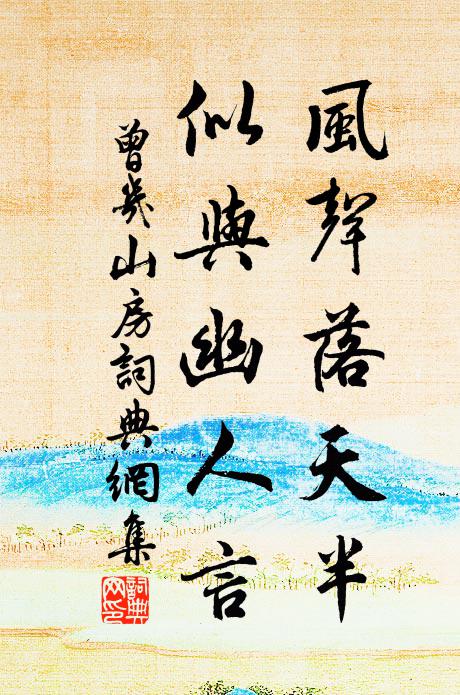 風聲落天半
似與幽人言
曾幾山房詞典網集